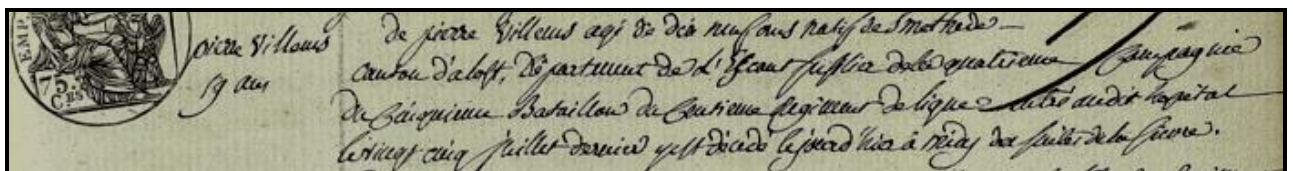 EMP
75.
C.ES
pierre Villems
19 ans
de pierre Villems agé de dix neuf ans natif de Smethede
canton d'alost, Département de L'Escaut fusilier de la quatrieme Compagnie
du Cinquieme Bataillon du Centieme Regiment de ligne entré audit hopital
le vingt cinq juillet dernier y est décédé le jourd'hier à midy des suites de la fievre.